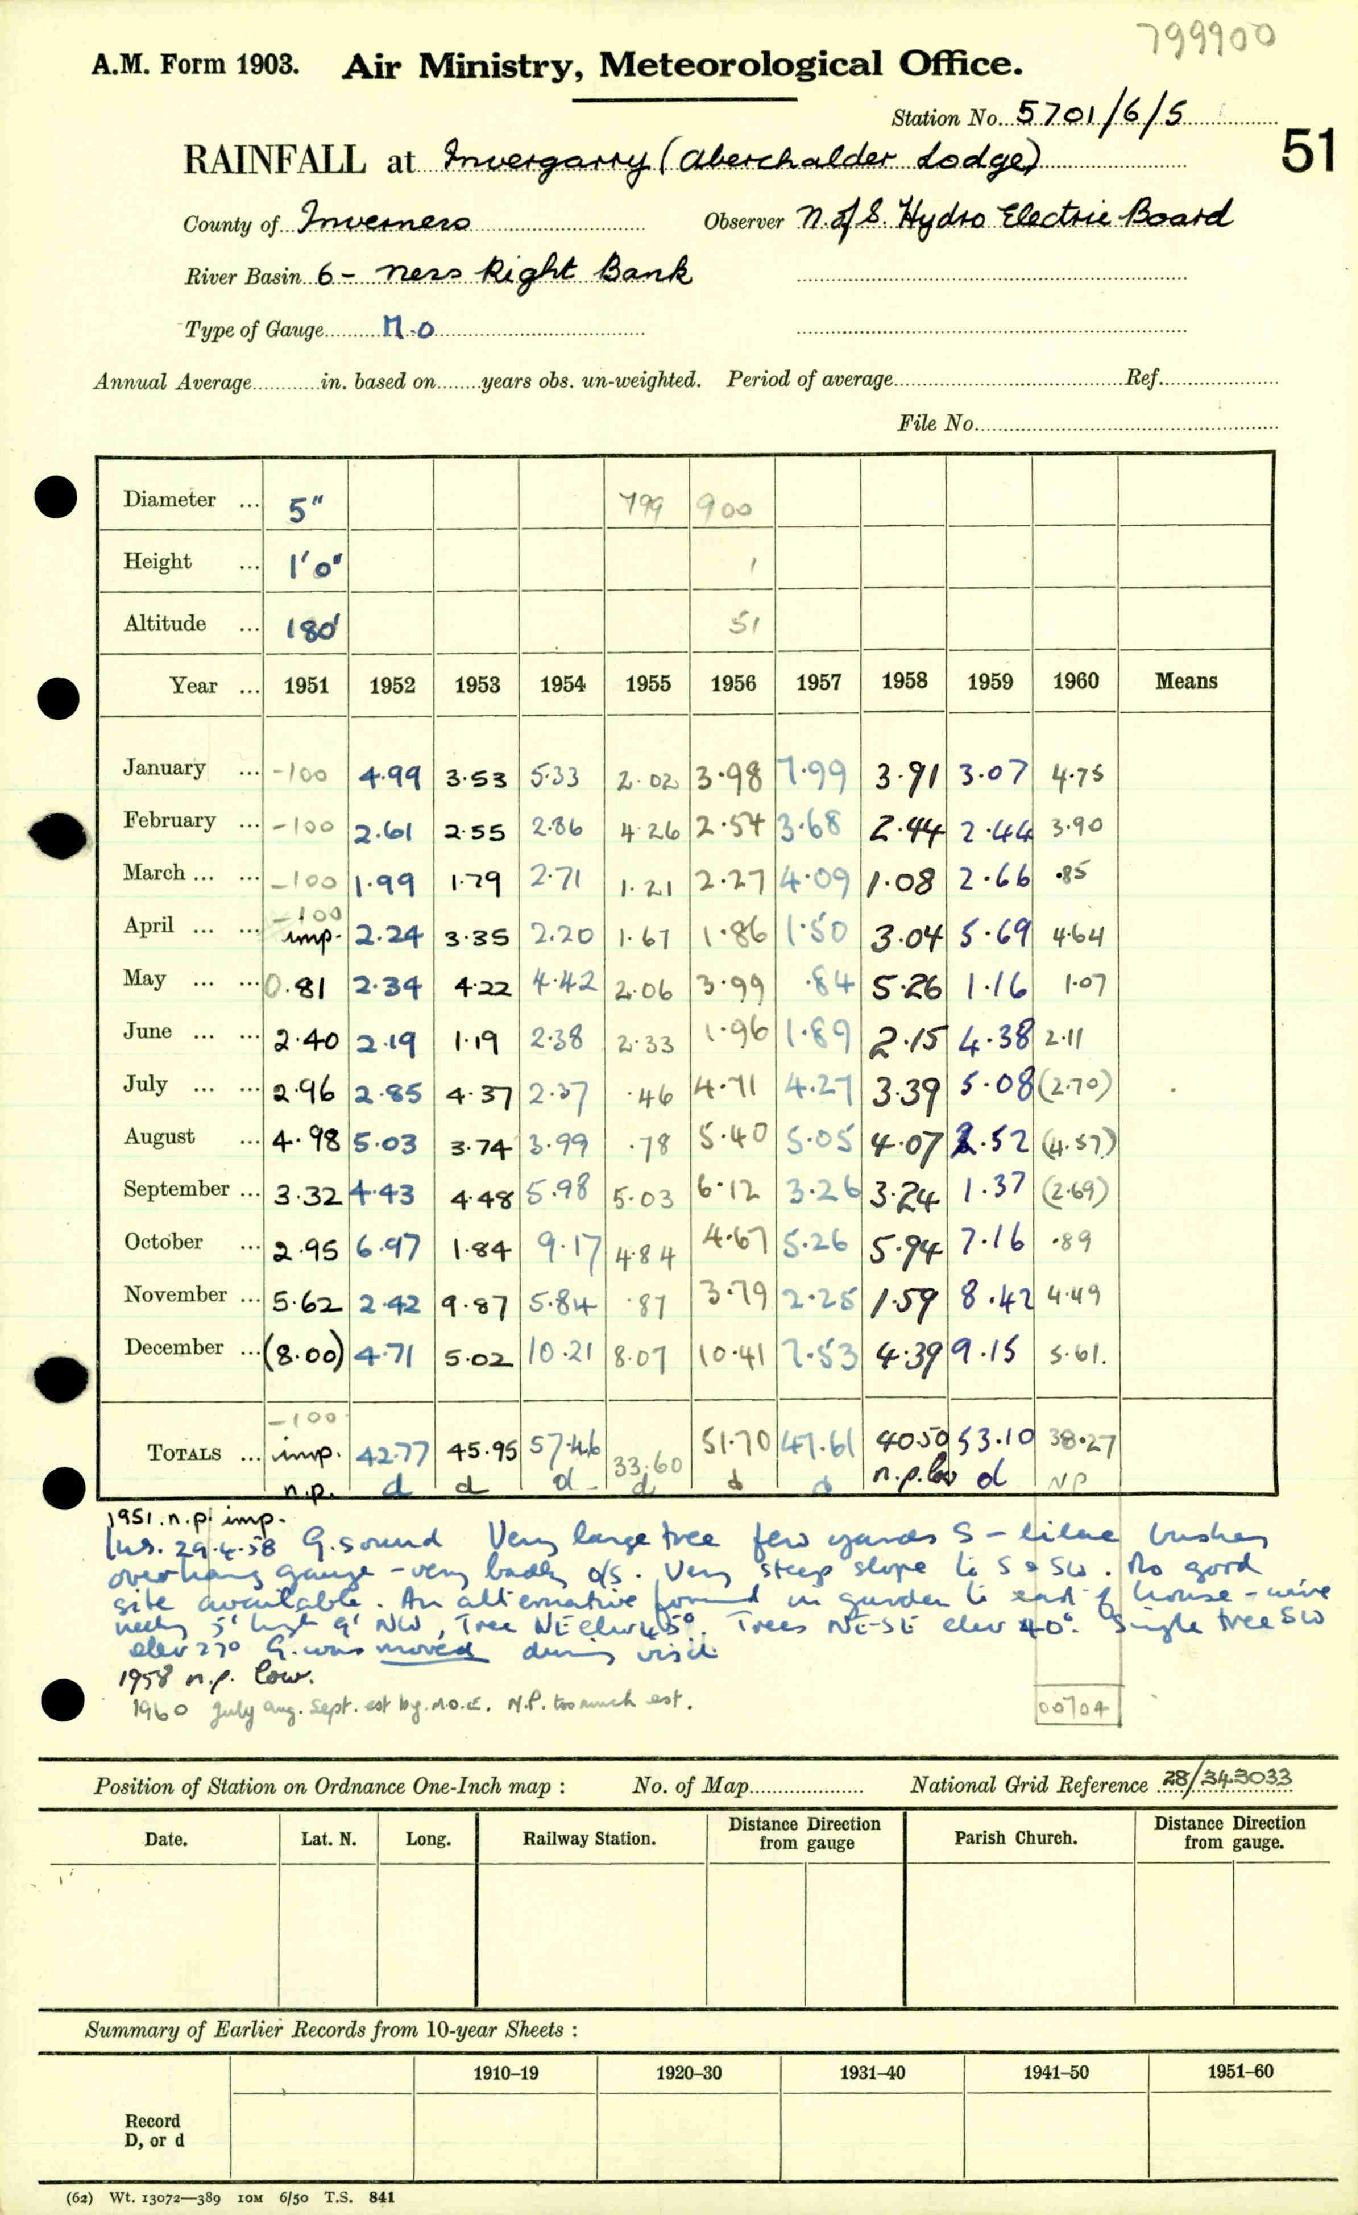 799900
A.M. Form 1903. Air Ministry, Meteorological Office.
Station No. 5701/6/5
51
RAINFALL at Invergarry (Aberchalder Lodge)
County of Inverness Observer N. of S. Hydro Electric Board
River Basin 6 - Ness Right Bank
Type of Gauge M.O
Annual Average in. based on years obs. un-weighted. Period of average Ref.
File No.
Diameter ... 5" 799 900
Height ... 1'0" 1
Altitude ... 180' 51
Year ... 1951 1952 1953 1954 1955 1956 1957 1958 1959 1960 Means
January ... -100 4.99 3.53 5.33 2.02 3.98 7.99 3.91 3.07 4.75
February ... -100 2.61 2.55 2.86 4.26 2.54 3.68 2.44 2.44 3.90
March ... ... -100 1.99 1.79 2.71 1.21 2.27 4.09 1.08 2.66 .85
April ... ... -100 imp. 2.24 3.35 2.20 1.67 1.86 1.50 3.04 5.69 4.64
May ... ... 0.81 2.34 4.22 4.42 2.06 3.99 .84 5.26 1.16 1.07
June ... ... 2.40 2.19 1.19 2.38 2.33 1.96 1.89 2.15 4.38 2.11
July ... ... 2.96 2.85 4.37 2.37 .46 4.71 4.27 3.39 5.08 (2.70)
August ... 4.98 5.03 3.74 3.99 .78 5.40 5.05 4.07 2.52 (4.57)
September ... 3.32 4.43 4.48 5.98 5.03 6.12 3.26 3.24 1.37 (2.69)
October ... 2.95 6.97 1.84 9.17 4.84 4.67 5.26 5.94 7.16 .89
November ... 5.62 2.42 9.87 5.84 .87 3.79 2.25 1.59 8.42 4.49
December ... (8.00) 4.71 5.02 10.21 8.07 10.41 7.53 4.39 9.15 5.61.
-100
TOTALS ... imp. 42.77 45.95 57.46 33.60 51.70 47.61 40.50 53.10 38.27
n.p. d d d d d d n.p. low d NP
1951. n.p. imp.
Ins. 29.4.58 G. sound Very large tree few yards S - lilac bushes
overhang gauge - very badly o/s. Very steep slope to S & SW. No good
site available. An alternative found in garden to east of house - wire
5' high 9' NW, Tree NE elev 45°. Trees NE-SE elev 40°. Single tree SW
elev 27° G. was moved during visit
1958 n.p. low.
1960 July Aug. Sept. est by M.O.E. N.P. too much est.
00704
Position of Station on Ordnance One-Inch map : No. of Map National Grid Reference 28/343033
Date. Lat. N. Long. Railway Station. Distance Direction from gauge Parish Church. Distance Direction from gauge.
Summary of Earlier Records from 10-year Sheets :
1910–19 1920–30 1931–40 1941–50 1951–60
Record
D, or d
(62) Wt. 13072—389 10M 6/50 T.S. 841